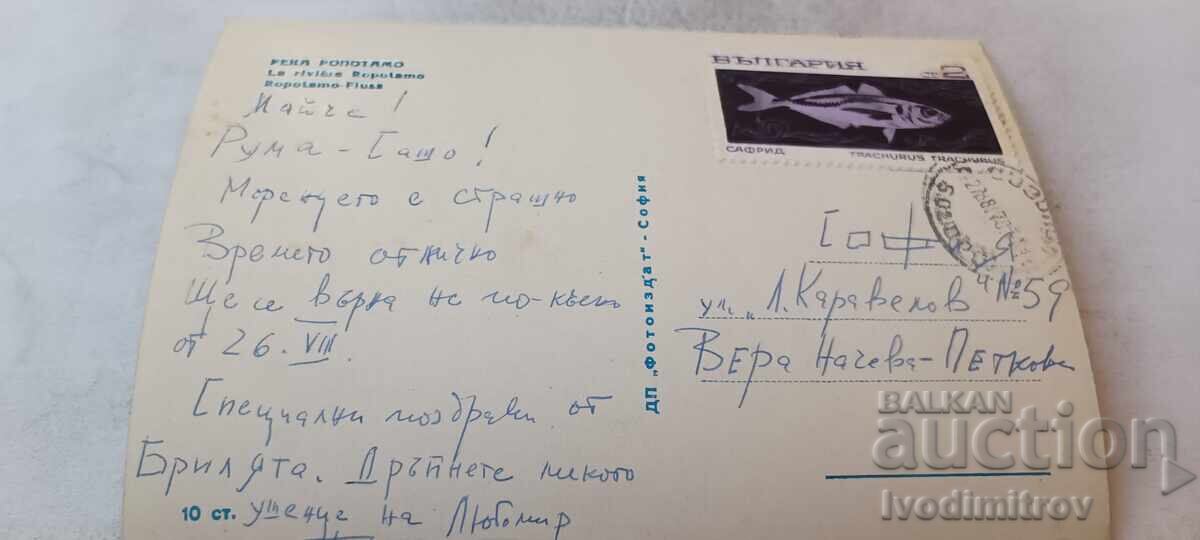 РЕКА РОПОТАМО
La rivière Ropotamo
Ropotamo-Fluss
Майче!
Рума - Сашо!
Моренцето е страшно
Времето отлично
Ще се върна не по-късно
от 26. VIII.
Специални поздрави от
Брилята. Дръпнете
на Любомир
10 ст.
ДП „Фотоиздат" - София
БЪЛГАРИЯ
ст 2
САФРИД
TRACHURUS TRACHURUS
София
ул. „Л. Каравелов" №59
Вера Начева-Петкова
BALKAN
auction
Ivodimitrov